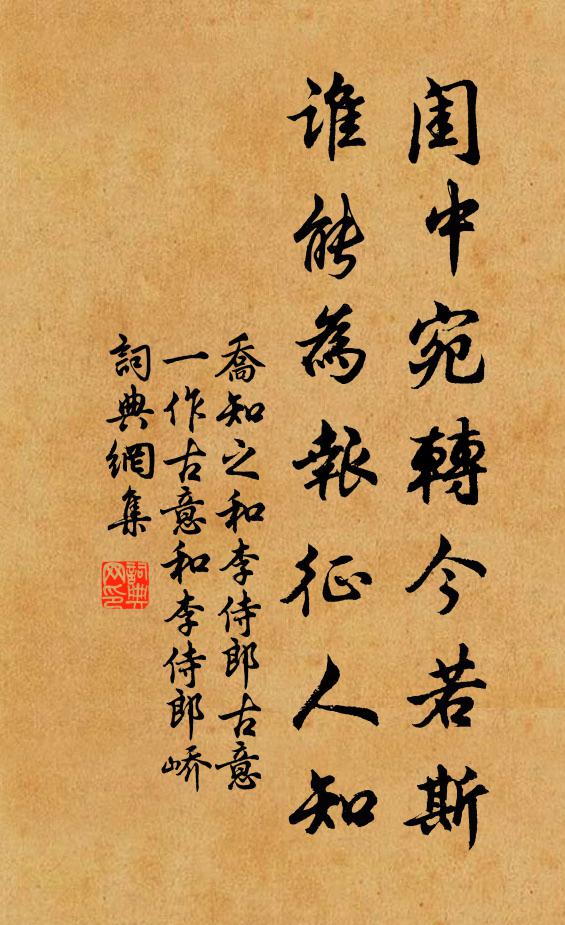 闺中宛轉今若斯
誰能為報征人知
喬知之和李侍郎古意
一作古意和李侍郎嶠
詞典網集
詞典網印